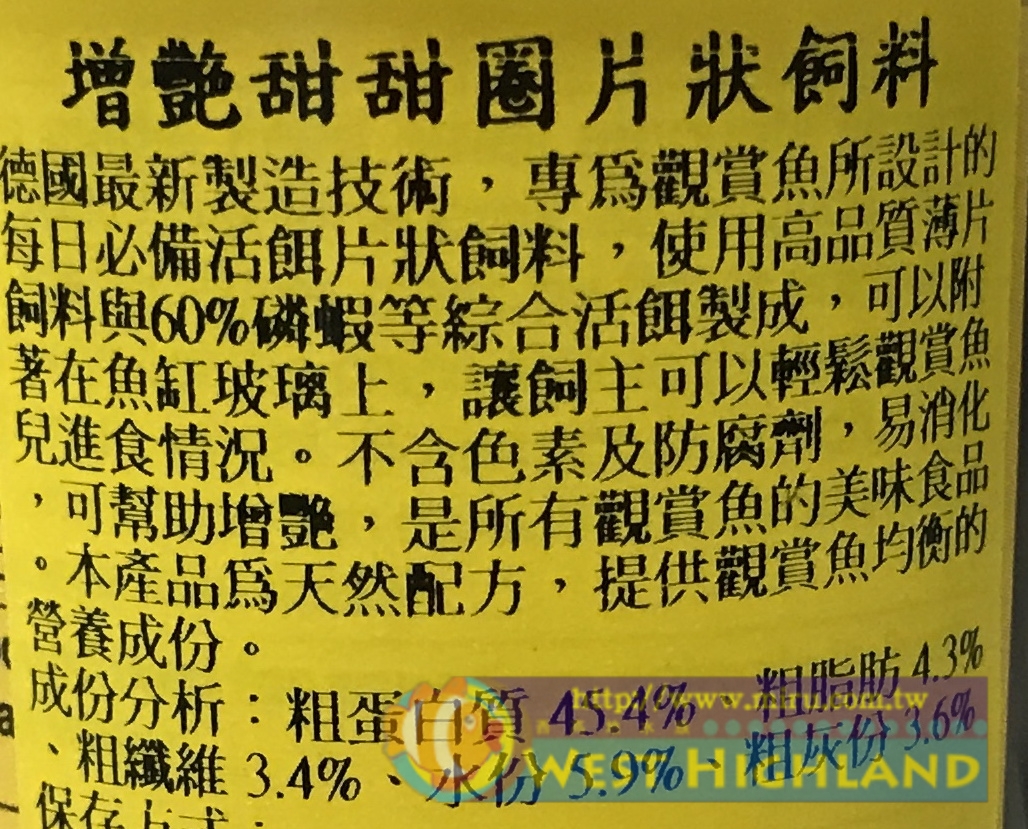 增艷甜甜圈片狀飼料
德國最新製造技術，專為觀賞魚所設計的
每日必備活餌片狀飼料，使用高品質薄片
飼料與60%磷蝦等綜合活餌製成，可以附
著在魚缸玻璃上，讓飼主可以輕鬆觀賞魚
兒進食情況。不含色素及防腐劑，易消化
，可幫助增艷，是所有觀賞魚的美味食品
。本產品為天然配方，提供觀賞魚均衡的
營養成份。
成份分析：粗蛋白質 45.4%、粗脂肪 4.3%
、粗纖維 3.4%、水份 5.9%、粗灰份 3.6%
保存方式：
WEST HIGHLAND